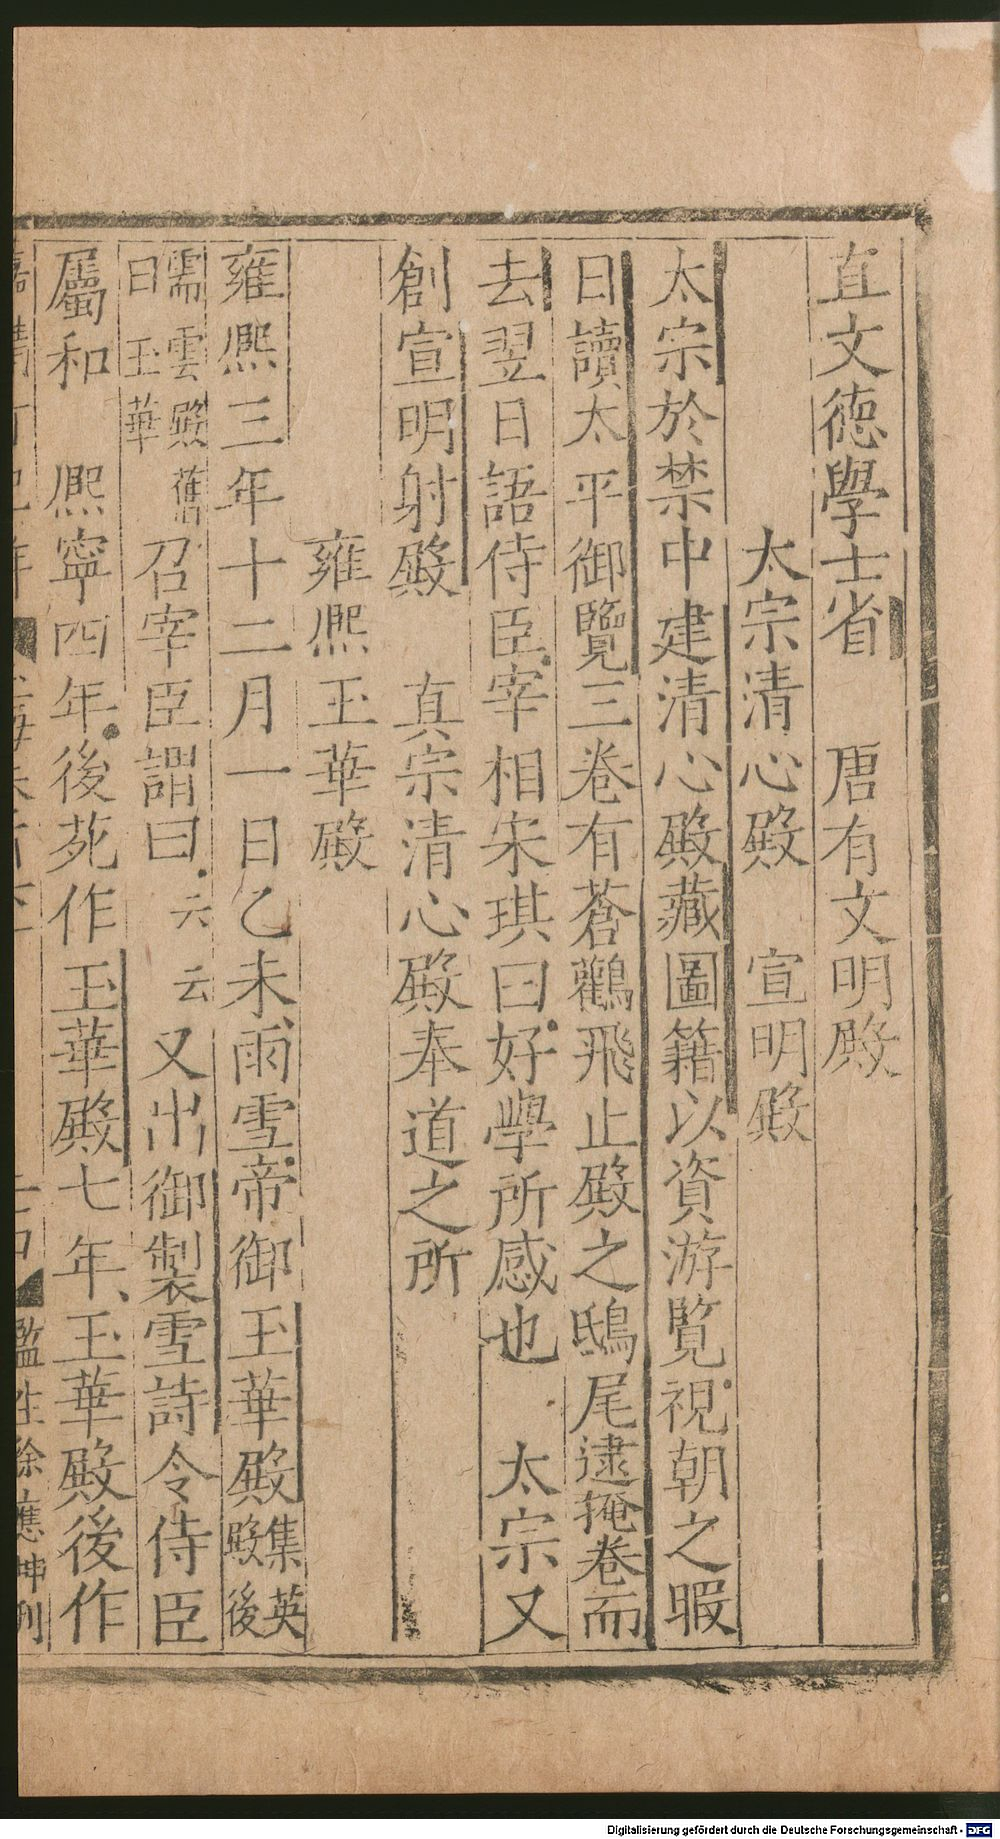 直文德學士省　唐有文明殿
太宗清心殿　宣明殿
太宗於禁中建清心殿藏圖籍以資游覽視朝之暇
日讀太平御覽三卷有蒼鸛飛止殿之鴟尾逮掩卷而
去翌日語侍臣宰相宋琪曰好學所感也　太宗又
創宣明射殿　真宗清心殿奉道之所
雍熙玉華殿
雍熙三年十二月一日乙未雨雪帝御玉華殿集英殿後
需雲殿舊曰玉華召宰臣謂曰云云又出御製雪詩令侍臣
屬和　熙寧四年後苑作玉華殿七年玉華殿後作
監生徐應坤刊
Digitalisierung gefördert durch die Deutsche Forschungsgemeinschaft - DFG